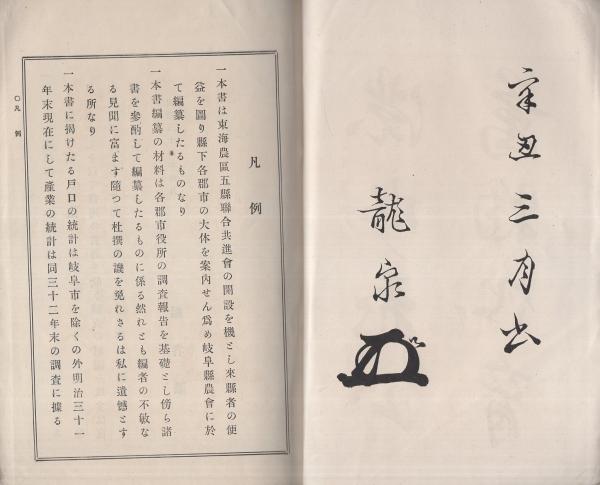 辛丑三月書
龍泉
凡例
一本書は東海農區五縣聯合共進會の開設を機とし來縣者の便
益を圖り縣下各郡市の大体を案內せん爲め岐阜縣農會に於
て編纂したるものなり
一本書編纂の材料は各郡市役所の調査報告を基礎とし傍ら諸
書を參酌して編纂したるものに係る然れとも編者の不敏な
る見聞に富ます隨つて杜撰の譏を免れさるは私に遺憾とす
る所なり
一本書に揭けたる戶口の統計は岐阜市を除くの外明治三十一
年末現在にして產業の統計は同三十二年末の調査に據る
〇凡例